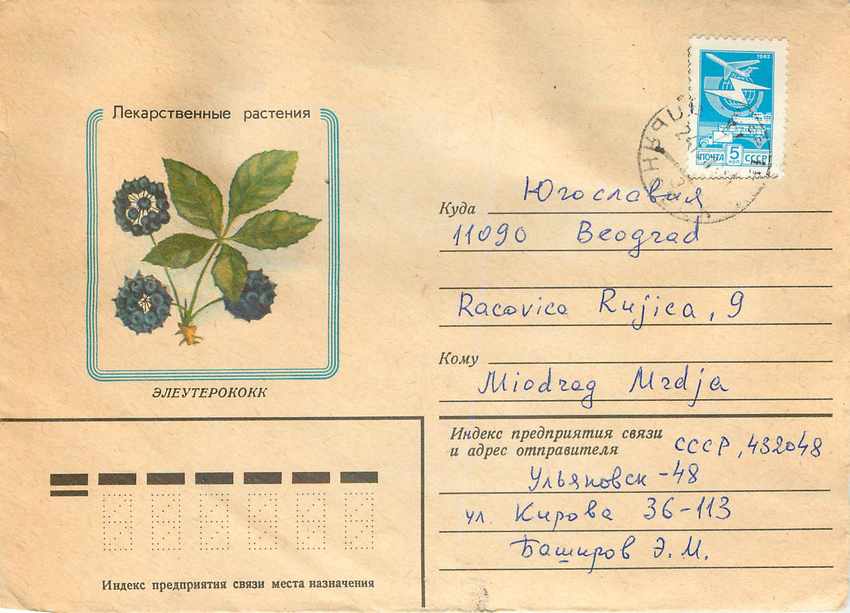 Лекарственные растения
ЭЛЕУТЕРОКОКК
1982
ПОЧТА 5 КОП СССР
Куда Югославия
11090 Beograd
Racovica Rujica, 9
Кому
Miodrag Mrdja
Индекс предприятия связи
и адрес отправителя СССР, 432048
Ульяновск-48
ул. Кирова 36-113
Баширов Э.М.
Индекс предприятия связи места назначения